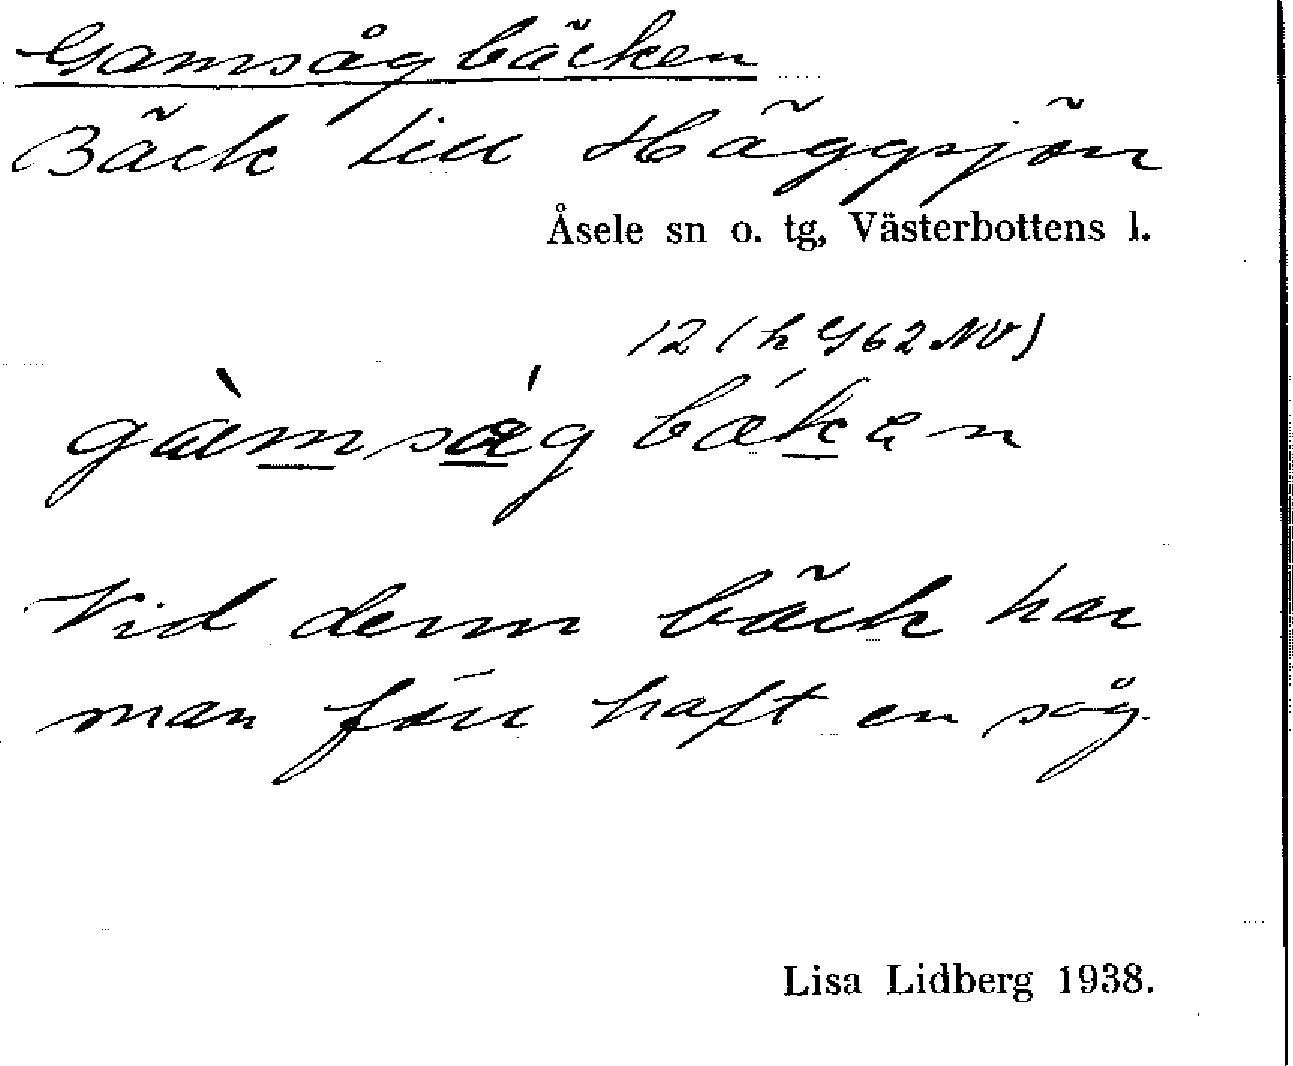 Gamsågbäcken
Bäck till Häggsjön
Åsele sn o. tg, Västerbottens l.
12 (h G62 NV)
gàmsǻg bäkən
Vid denna bäck har
man förr haft en såg.
Lisa Lidberg 1938.